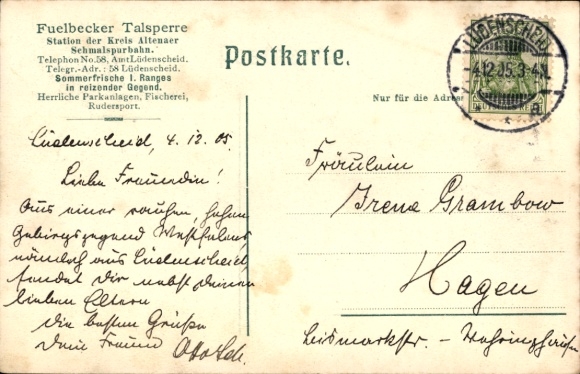 Fuelbecker Talsperre
Station der Kreis Altenaer
Schmalspurbahn.
Telephon No. 58, Amt Lüdenscheid.
Telegr.-Adr.: 58 Lüdenscheid.
Sommerfrische I. Ranges
in reizender Gegend.
Herrliche Parkanlagen, Fischerei,
Rudersport.
Postkarte.
Nur für die Adresse
LÜDENSCHEID
4.12.05. 3-4N
Lüdenscheid, 4.12.05.
Liebe Freundin!
Aus einer rauhen, hohen
Gebirgsgegend Westfalens
nämlich aus Lüdenscheid,
sendet Dir nebst Deinen
lieben Eltern
die besten Grüße
Dein Freund Otto Sch.
Fräulein
Irene Grambow
Hagen
Bismarkstr. -